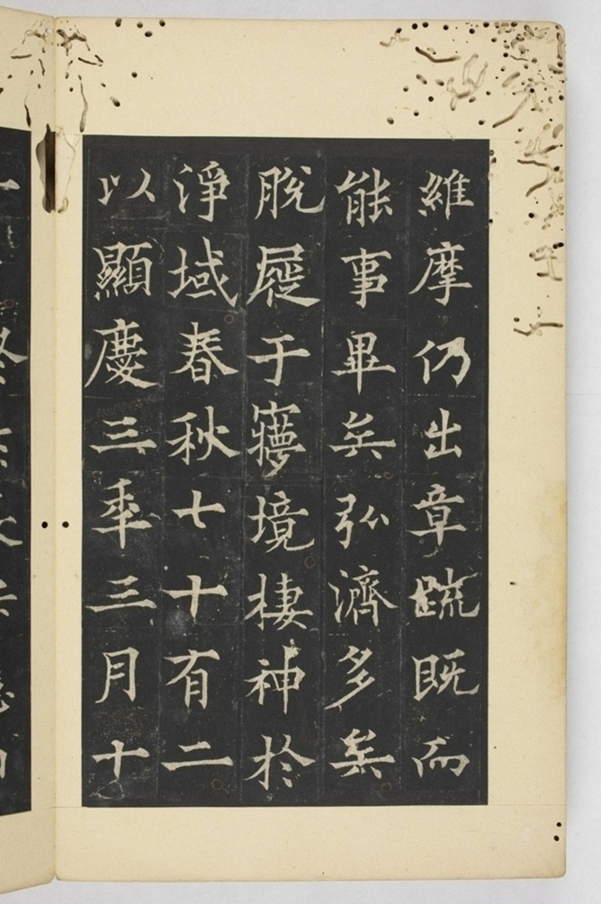 維摩仍出章䟽既而
能事畢矣弘濟多矣
脫屣于㝱境棲神於
淨域春秋七十有二
以顯慶三年三月十